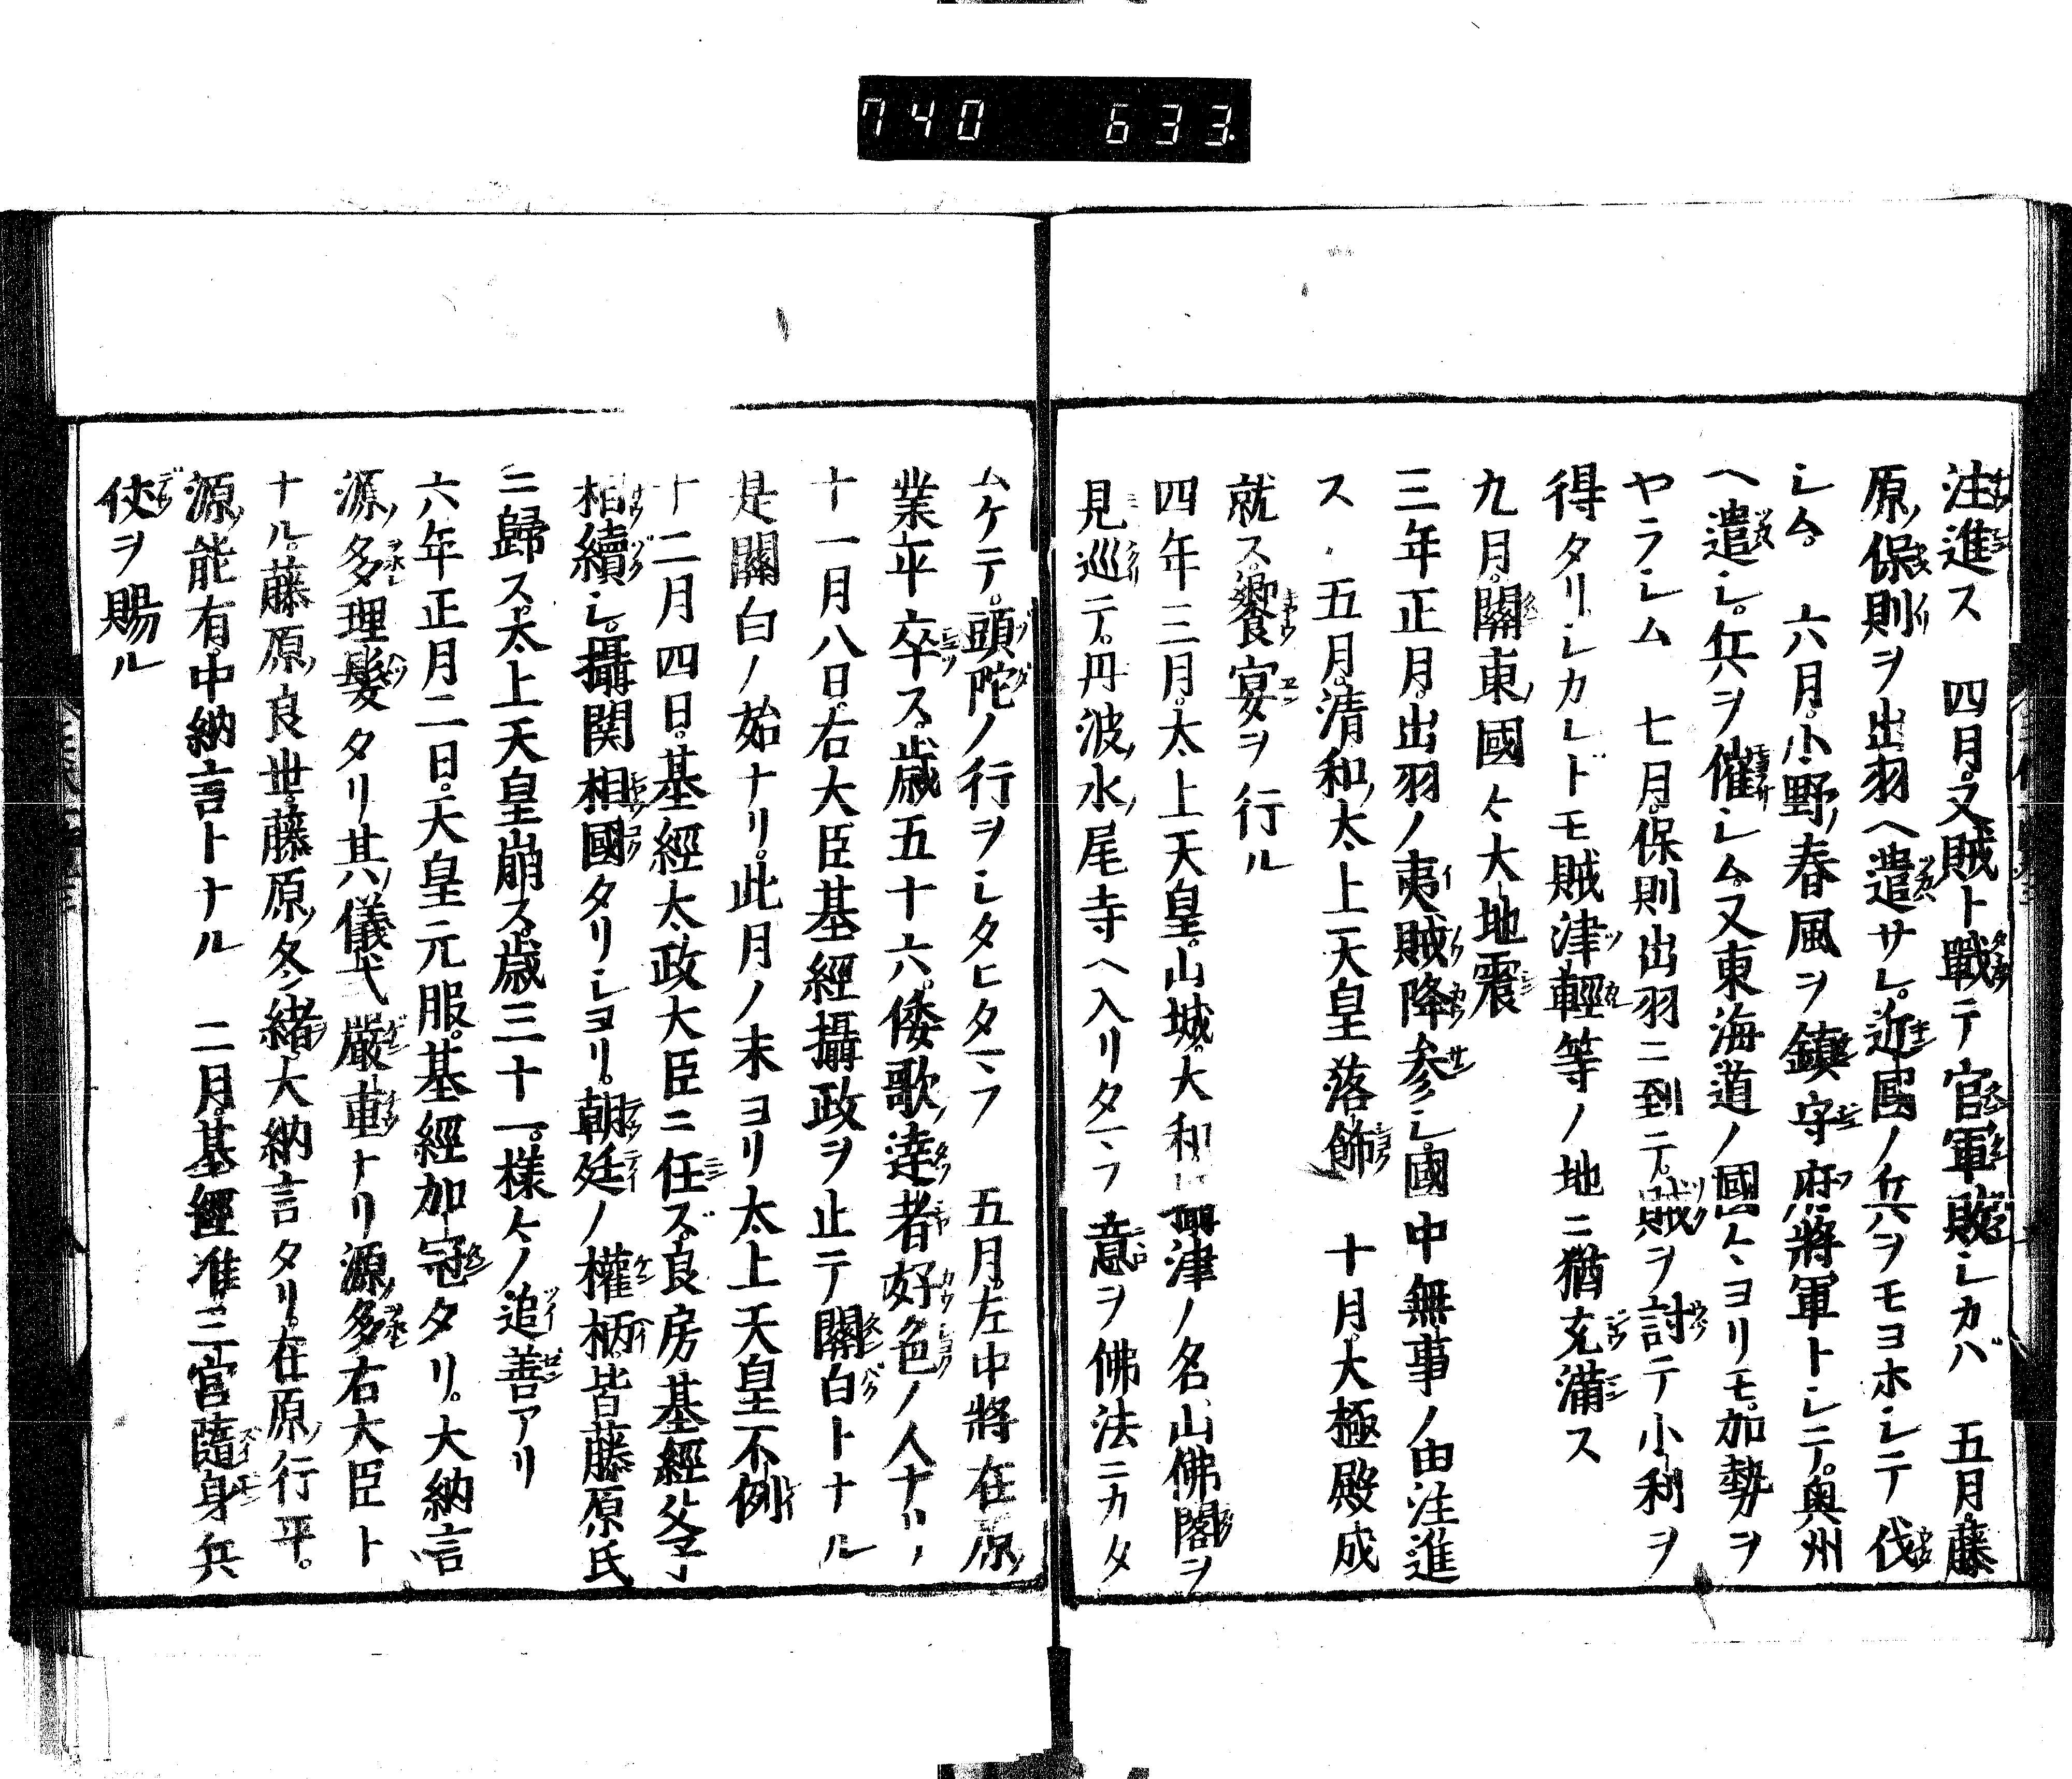 740 633
注進ス 四月。又賊ト戰テ官軍敗シカバ 五月。藤
原ノ保則ヲ出羽ヘ遣サレ。近國ノ兵ヲモヨホシテ伐
シム。 六月。小野ノ春風ヲ鎮守府ノ將軍トシテ。奥州
ヘ遣シ。兵ヲ催シム。又東海道ノ國々ヨリモ。加勢ヲ
ヤラシム 七月。保則出羽ニ到テ。賊ヲ討テ小利ヲ
得タリシカレドモ賊津輕等ノ地ニ猶充滿ス
九月。關東ノ國々大地震
三年正月。出羽ノ夷賊降參シ。國中無事ノ由注進
ス 五月。清和ノ太上天皇落飾 十月。大極殿成
就ス。饗宴ヲ行ル
四年三月。太上天皇。山城。大和 攝津ノ名山佛閣ヲ
見巡テ。丹波ノ水ノ尾寺ヘ入リタマフ 意ヲ佛法ニカタ
ムケテ。頭陀ノ行ヲシタヒタマフ 五月。左中將在原ノ
業平卒ス。歳五十六。倭歌ノ達者好色ノ人ナリ
十一月八日。右大臣基經攝政ヲ止テ關白トナル
是關白ノ始ナリ。此月ノ末ヨリ太上天皇不例
十二月四日。基經太政大臣ニ任ズ。良房基經父子
相續シ。攝関相國タリシヨリ。朝廷ノ權柄。皆藤原氏
ニ歸ス。太上天皇崩ス。歳三十一。樣々ノ追善アリ
六年正月二日。天皇元服。基經加冠タリ。大納言
源ノ多理髮タリ其ノ儀式嚴重ナリ源ノ多右大臣ト
ナル。藤原ノ良世。藤原ノ冬緒。大納言タリ。在原ノ行平。
源ノ能有。中納言トナル 二月。基經准三宮隨身兵
仗ヲ賜ル